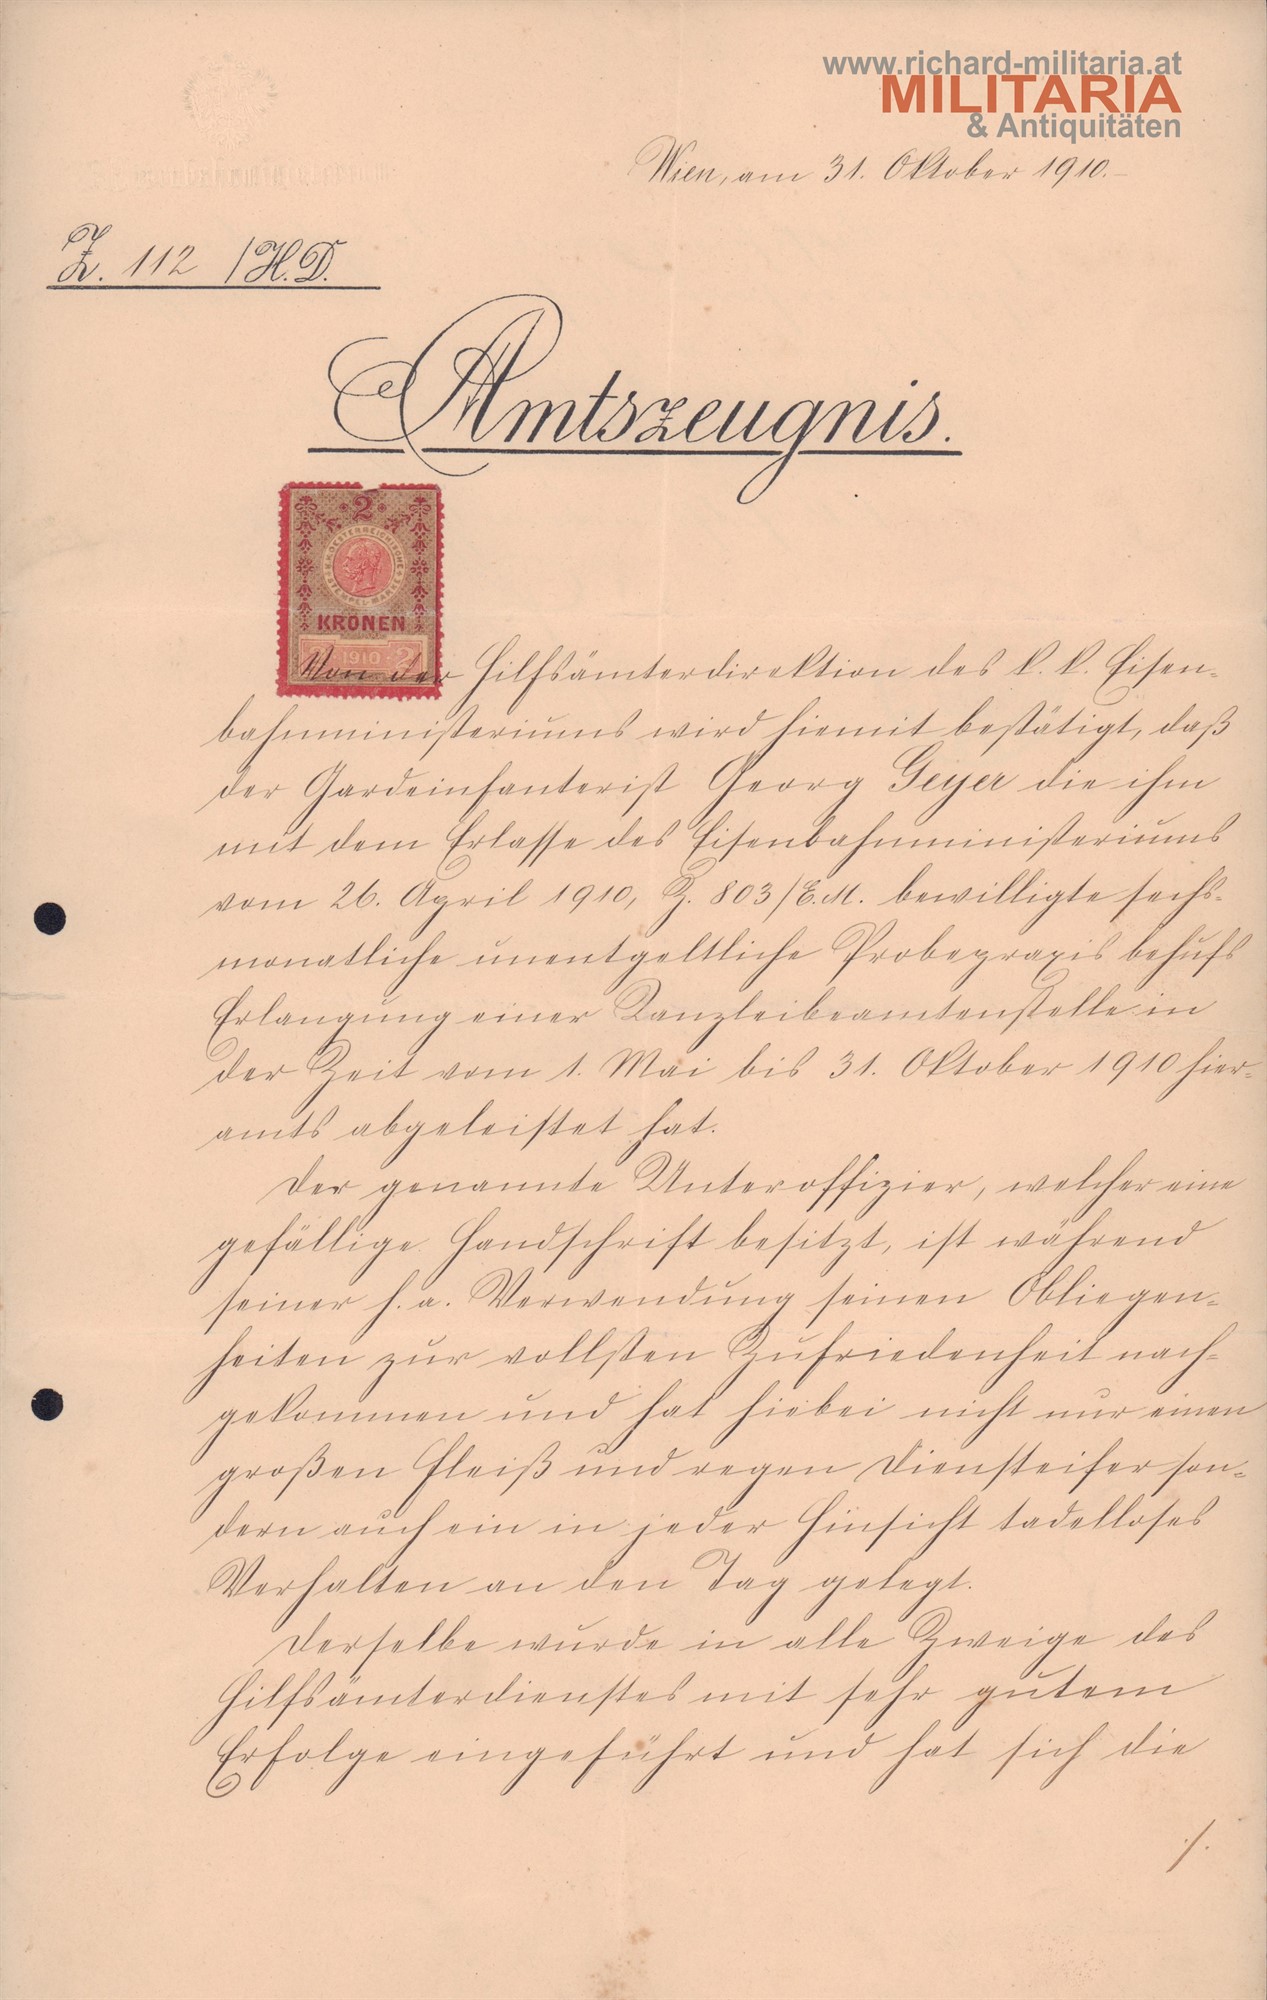 www.richard-militaria.at
MILITARIA
& Antiquitäten
Wien, am 31. Oktober 1910.-
Z. 112 /H.D.
Amtszeugnis.
2
K.K. OESTERREICHISCHE
STEMPEL MARKE
KRONEN
1910 2
Von der Hilfsämterdirektion des k. k. Eisen-
bahnministeriums wird hiemit bestätigt, daß
der Gardeinfanterist Georg Geyer die ihm
mit dem Erlasse des Eisenbahnministeriums
vom 26. April 1910, Z. 803/E.M. bewilligte sechs-
monatliche unentgeltliche Probepraxis behufs
Erlangung einer Kanzleibeamtenstelle in
der Zeit vom 1. Mai bis 31. Oktober 1910 hier-
amts abgeleistet hat.
Der genannte Unteroffizier, welcher eine
gefällige Handschrift besitzt, ist während
seiner h. a. Verwendung seinen Obliegen-
heiten zur vollsten Zufriedenheit nach-
gekommen und hat hiebei nicht nur einen
großen Fleiß und regen Diensteifer son-
dern auch ein in jeder Hinsicht tadelloses
Verhalten an den Tag gelegt.
Derselbe wurde in alle Zweige des
Hilfsämterdienstes mit sehr gutem
Erfolge eingeführt und hat sich die
./.